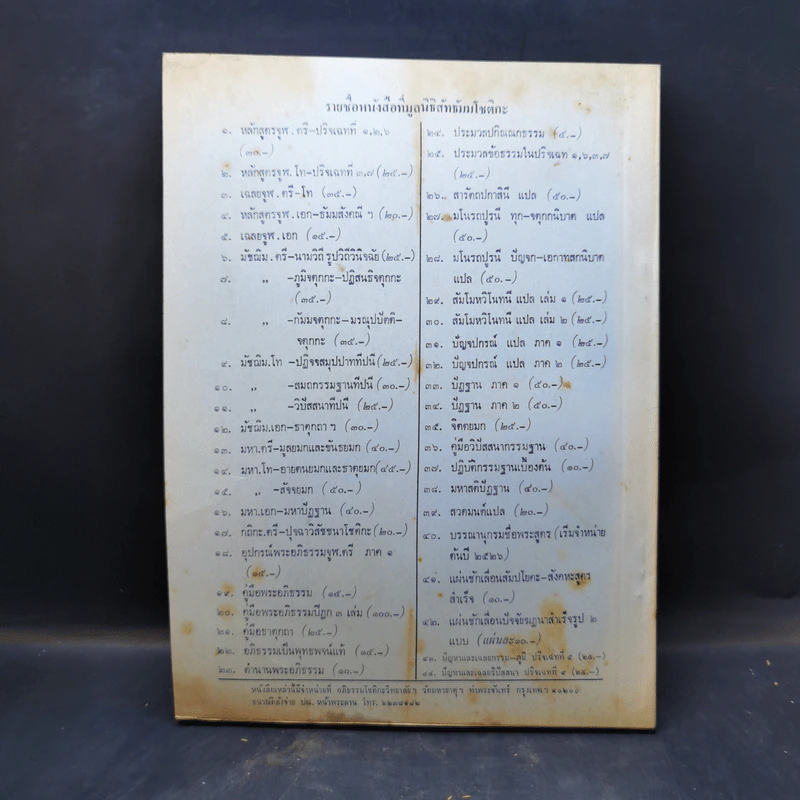 รายชื่อหนังสือที่มูลนิธิสัทธัมมโชติกะ
๑. หลักสูตรจูฬ.ตรี-ปริจเฉทที่ ๑,๒,๖
(๓๐.-)
๒. หลักสูตรจูฬ.โท-ปริจเฉทที่ ๓,๗ (๒๕.-)
๓. เฉลยจูฬ.ตรี-โท (๓๕.-)
๔. หลักสูตรจูฬ.เอก-ธัมมสังคณี ฯ (๒๐.-)
๕. เฉลยจูฬ.เอก (๑๕.-)
๖. มัชฌิม.ตรี-นามวิถี รูปวิถีวินิจฉัย (๒๕.-)
๗. ,, -ภูมิจตุกกะ-ปฏิสนธิจตุกกะ
(๓๕.-)
๘. ,, -กัมมจตุกกะ-มรณุปปัตติ-
จตุกกะ (๓๕.-)
๙. มัชฌิม.โท -ปฏิจจสมุปปาททีปนี (๒๕.-)
๑๐. ,, -สมถกรรมฐานทีปนี (๓๐.-)
๑๑. ,, -วิปัสสนาทีปนี (๒๕.-)
๑๒. มัชฌิม.เอก-ธาตุกถา ฯ (๓๐.-)
๑๓. มหา.ตรี-มูลยมกและขันธยมก (๔๐.-)
๑๔. มหา.โท-อายตนยมกและธาตุยมก (๔๕.-)
๑๕. ,, -สัจจยมก (๕๐.-)
๑๖. มหา.เอก-มหาปัฏฐาน (๔๐.-)
๑๗. กถิกะ.ตรี-ปุจฉาวิสัชชนาโชติกะ (๒๐.-)
๑๘. อุปกรณ์พระอภิธรรมจูฬ.ตรี ภาค ๑
(๑๕.-)
๑๙. คู่มือพระอภิธรรม (๑๕.-)
๒๐. คู่มือพระอภิธรรมปิฎก ๓ เล่ม (๑๐๐.-)
๒๑. คู่มือธาตุกถา (๒๕.-)
๒๒. อภิธรรมเป็นพุทธพจน์แท้ (๑๕.-)
๒๓. ตำนานพระอภิธรรม (๑๐.-)
๒๔. ประมวลปกิณณกธรรม (๕.-)
๒๕. ประมวลข้อธรรมในปริจเฉท ๑,๖,๓,๗
(๒๕.-)
๒๖. สารัตถปกาสินี แปล (๕๐.-)
๒๗. มโนรถปูรนี ทุก-จตุกกนิบาต แปล
(๕๐.-)
๒๘. มโนรถปูรนี ปัญจก-เอกาทสกนิบาต
แปล (๕๐.-)
๒๙. สัมโมหวิโนทนี แปล เล่ม ๑ (๒๕.-)
๓๐. สัมโมหวิโนทนี แปล เล่ม ๒ (๒๕.-)
๓๑. ปัญจปกรณ์ แปล ภาค ๑ (๒๕.-)
๓๒. ปัญจปกรณ์ แปล ภาค ๒ (๒๕.-)
๓๓. ปัฏฐาน ภาค ๑ (๕๐.-)
๓๔. ปัฏฐาน ภาค ๒ (๕๐.-)
๓๕. จิตตยมก (๒๕.-)
๓๖. คู่มือวิปัสสนากรรมฐาน (๔๐.-)
๓๗. ปฏิบัติกรรมฐานเบื้องต้น (๑๐.-)
๓๘. มหาสติปัฏฐาน (๔๐.-)
๓๙. สวดมนต์แปล (๒๐.-)
๔๐. บรรณานุกรมชื่อพระสูตร (เริ่มจำหน่าย
ต้นปี ๒๕๒๖)
๔๑. แผ่นชักเลื่อนสัมปโยคะ-สังคหะสูตร
สำเร็จ (๑๐.-)
๔๒. แผ่นชักเลื่อนปัจจัยฆฏนาสำเร็จรูป ๒
แบบ (แผ่นละ๑๐.-)
๔๓. ปัญหาและเฉลยกรรม-ภูมิ ปริจเฉทที่ ๕ (๒๕.-)
๔๔. ปัญหาและเฉลยวิปัสสนา ปริจเฉทที่ ๙ (๒๕.-)
หนังสือเหล่านี้มีจำหน่ายที่ อภิธรรมโชติกะวิทยาลัยฯ วัดมหาธาตุฯ ท่าพระจันทร์ กรุงเทพฯ ๑๐๒๐๐
ธนาณัติสั่งจ่าย ปณ. หน้าพระลาน โทร.